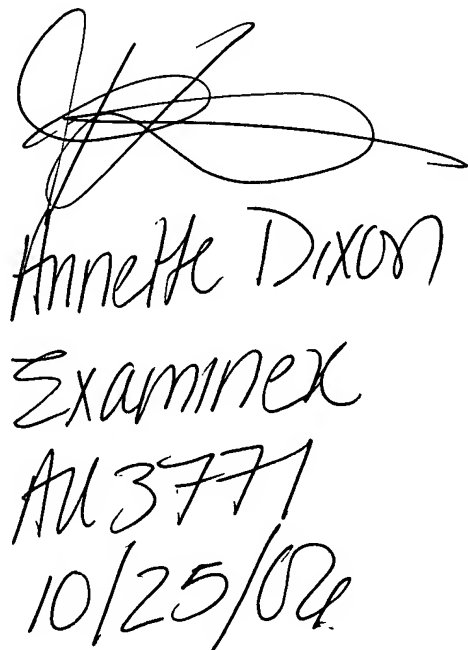 Annette Dixon
Examiner
AU 3771
10/25/06